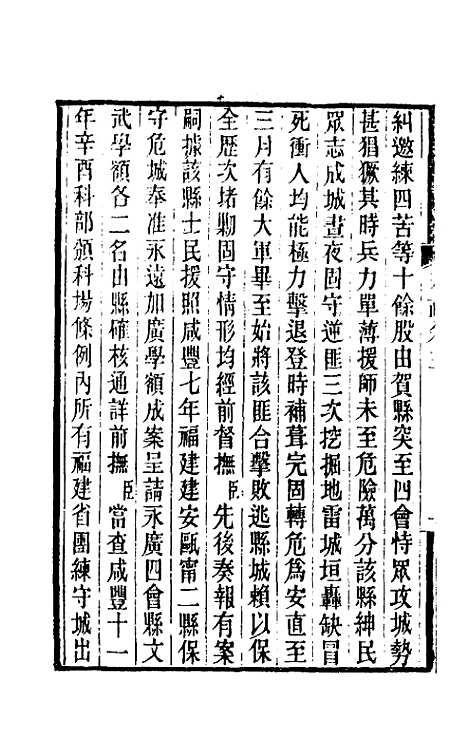 糾邀練四苦等十餘股由賀縣突至四會恃眾攻城勢
甚猖獗其時兵力單薄援師未至危險萬分該縣紳民
眾志成城晝夜固守逆匪三次挖掘地雷城垣轟缺冒
死衝人均能極力擊退登時補葺完固轉危爲安直至
三月有餘大軍畢至始將該匪合擊敗逃縣城賴以保
全歷次堵勦固守情形均經前督撫臣先後奏報有案
嗣據該縣士民援照咸豐七年福建建安甌甯二縣保
守危城奉准永遠加廣學額成案呈請永廣四會縣文
武學額各二名由縣確核通詳前撫臣當查咸豐十一
年辛酉科部頒科場條例內所有福建省團練守城出